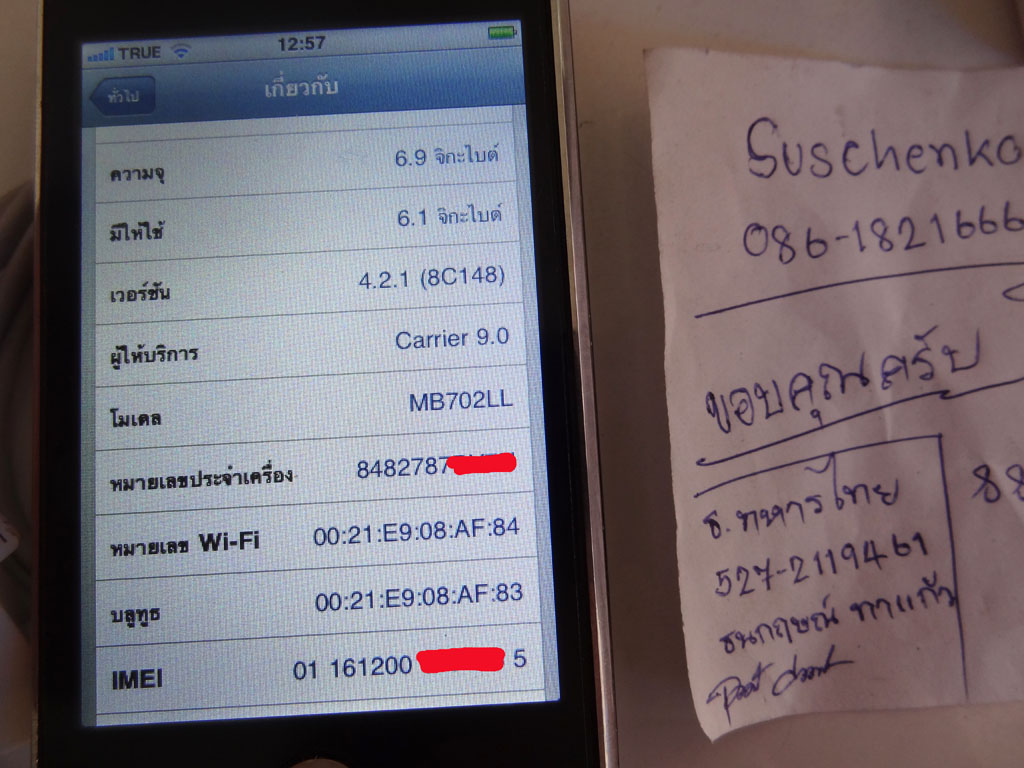 TRUE 12:57
ทั่วไป เกี่ยวกับ
ความจุ 6.9 จิกะไบต์
มีให้ใช้ 6.1 จิกะไบต์
เวอร์ชัน 4.2.1 (8C148)
ผู้ให้บริการ Carrier 9.0
โมเดล MB702LL
หมายเลขประจำเครื่อง 8482787
หมายเลข Wi-Fi 00:21:E9:08:AF:84
บลูทูธ 00:21:E9:08:AF:83
IMEI 01 161200 5
Suschenko
086-1821666
ขอบคุณครับ
ธ.ทหารไทย
527-2119461
ธนกฤษณ์ ทาแก้ว
88